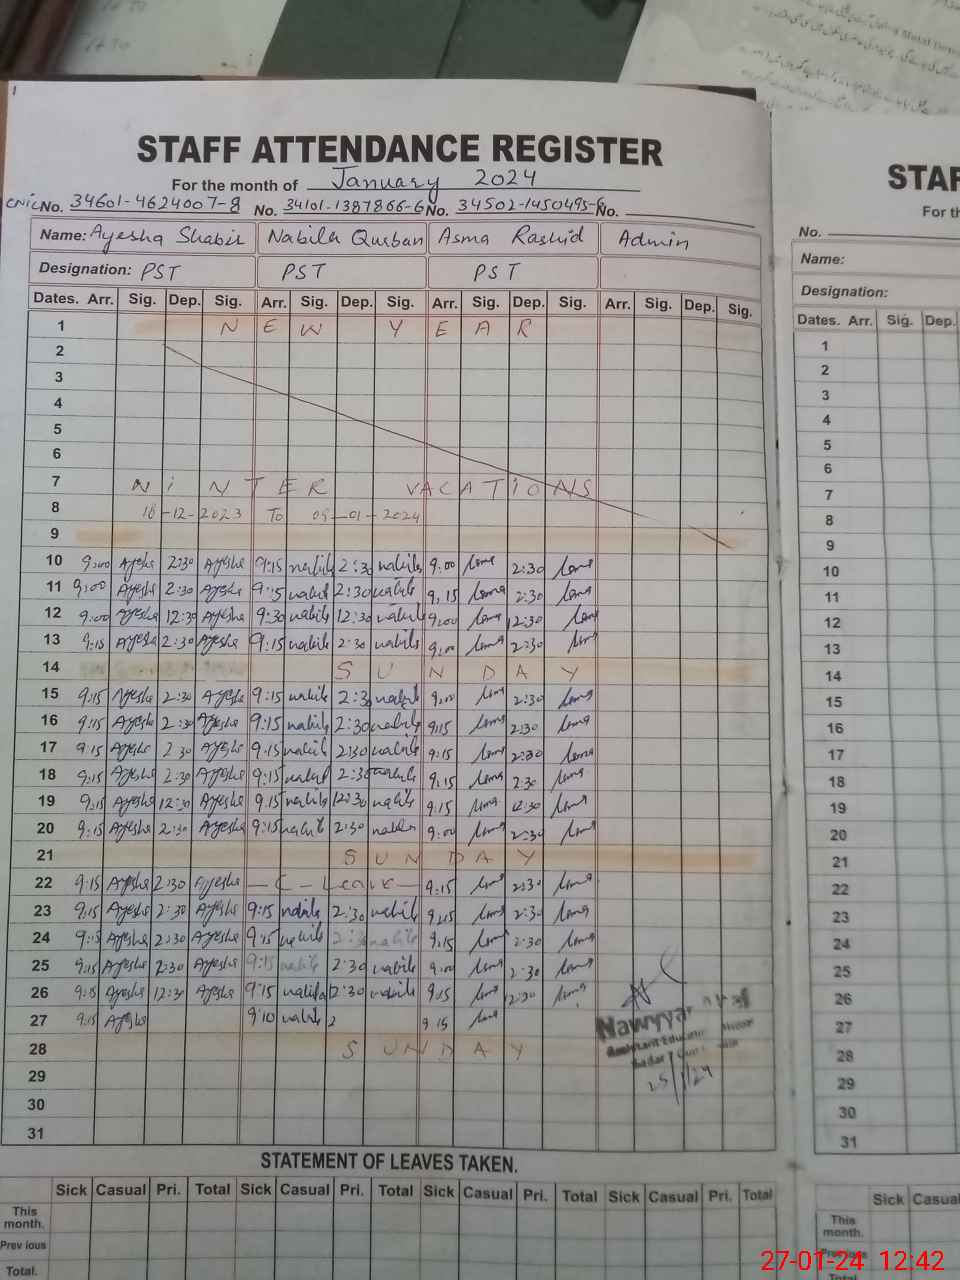 STAFF ATTENDANCE REGISTER
For the month of January 2024
CNIC No. 34601-4624007-8 No. 34101-1387866-6 No. 34502-1450495-6 No.
Name: Ayesha Shabir Nabila Qurban Asma Rashid Admin
Designation: PST PST PST
Dates. Arr. Sig. Dep. Sig. Arr. Sig. Dep. Sig. Arr. Sig. Dep. Sig. Arr. Sig. Dep. Sig.
1 NEW YEAR
2
3
4
5
6
7 WINTER VACATIONS
8 18-12-2023 To 09-01-2024
9
10 9:00 Ayesha 2:30 Ayesha 9:15 nabila 2:30 nabila 9:00 2:30
11 9:00 Ayesha 2:30 Ayesha 9:15 nabila 2:30 nabila 9:15 2:30
12 9:00 Ayesha 12:30 Ayesha 9:30 nabila 12:30 nabila 9:00 12:30
13 9:15 Ayesha 2:30 Ayesha 9:15 nabila 2:30 nabila 9:00 2:30
14 SUNDAY
15 9:15 Ayesha 2:30 Ayesha 9:15 nabila 2:30 nabila 9:00 2:30
16 9:15 Ayesha 2:30 Ayesha 9:15 nabila 2:30 nabila 9:15 2:30
17 9:15 Ayesha 2:30 Ayesha 9:15 nabila 2:30 nabila 9:15 2:30
18 9:15 Ayesha 2:30 Ayesha 9:15 nabila 2:30 nabila 9:15 2:30
19 9:15 Ayesha 12:30 Ayesha 9:15 nabila 12:30 nabila 9:15 12:30
20 9:15 Ayesha 2:30 Ayesha 9:15 nabila 2:30 nabila 9:00 2:30
21 SUNDAY
22 9:15 Ayesha 2:30 Ayesha — C - Leave — 9:15 2:30
23 9:15 Ayesha 2:30 Ayesha 9:15 nabila 2:30 nabila 9:15 2:30
24 9:15 Ayesha 2:30 Ayesha 9:15 nabila 2:30 nabila 9:15 2:30
25 9:15 Ayesha 2:30 Ayesha 9:15 nabila 2:30 nabila 9:00 2:30
26 9:15 Ayesha 12:30 Ayesha 9:15 nabila 12:30 nabila 9:15 12:30
27 9:15 Ayesha 9:10 nabila 2 9 15
28 SUNDAY
29
30
31
Assistant Education
25/1/24
STATEMENT OF LEAVES TAKEN.
Sick Casual Pri. Total Sick Casual Pri. Total Sick Casual Pri. Total Sick Casual Pri. Total
This month.
Prev ious
Total.
STAF
For th
No.
Name:
Designation:
Dates. Arr. Sig. Dep.
1
2
3
4
5
6
7
8
9
10
11
12
13
14
15
16
17
18
19
20
21
22
23
24
25
26
27
28
29
30
31
Sick Casual
This month.
Previous
Total.
27-01-24 12:42